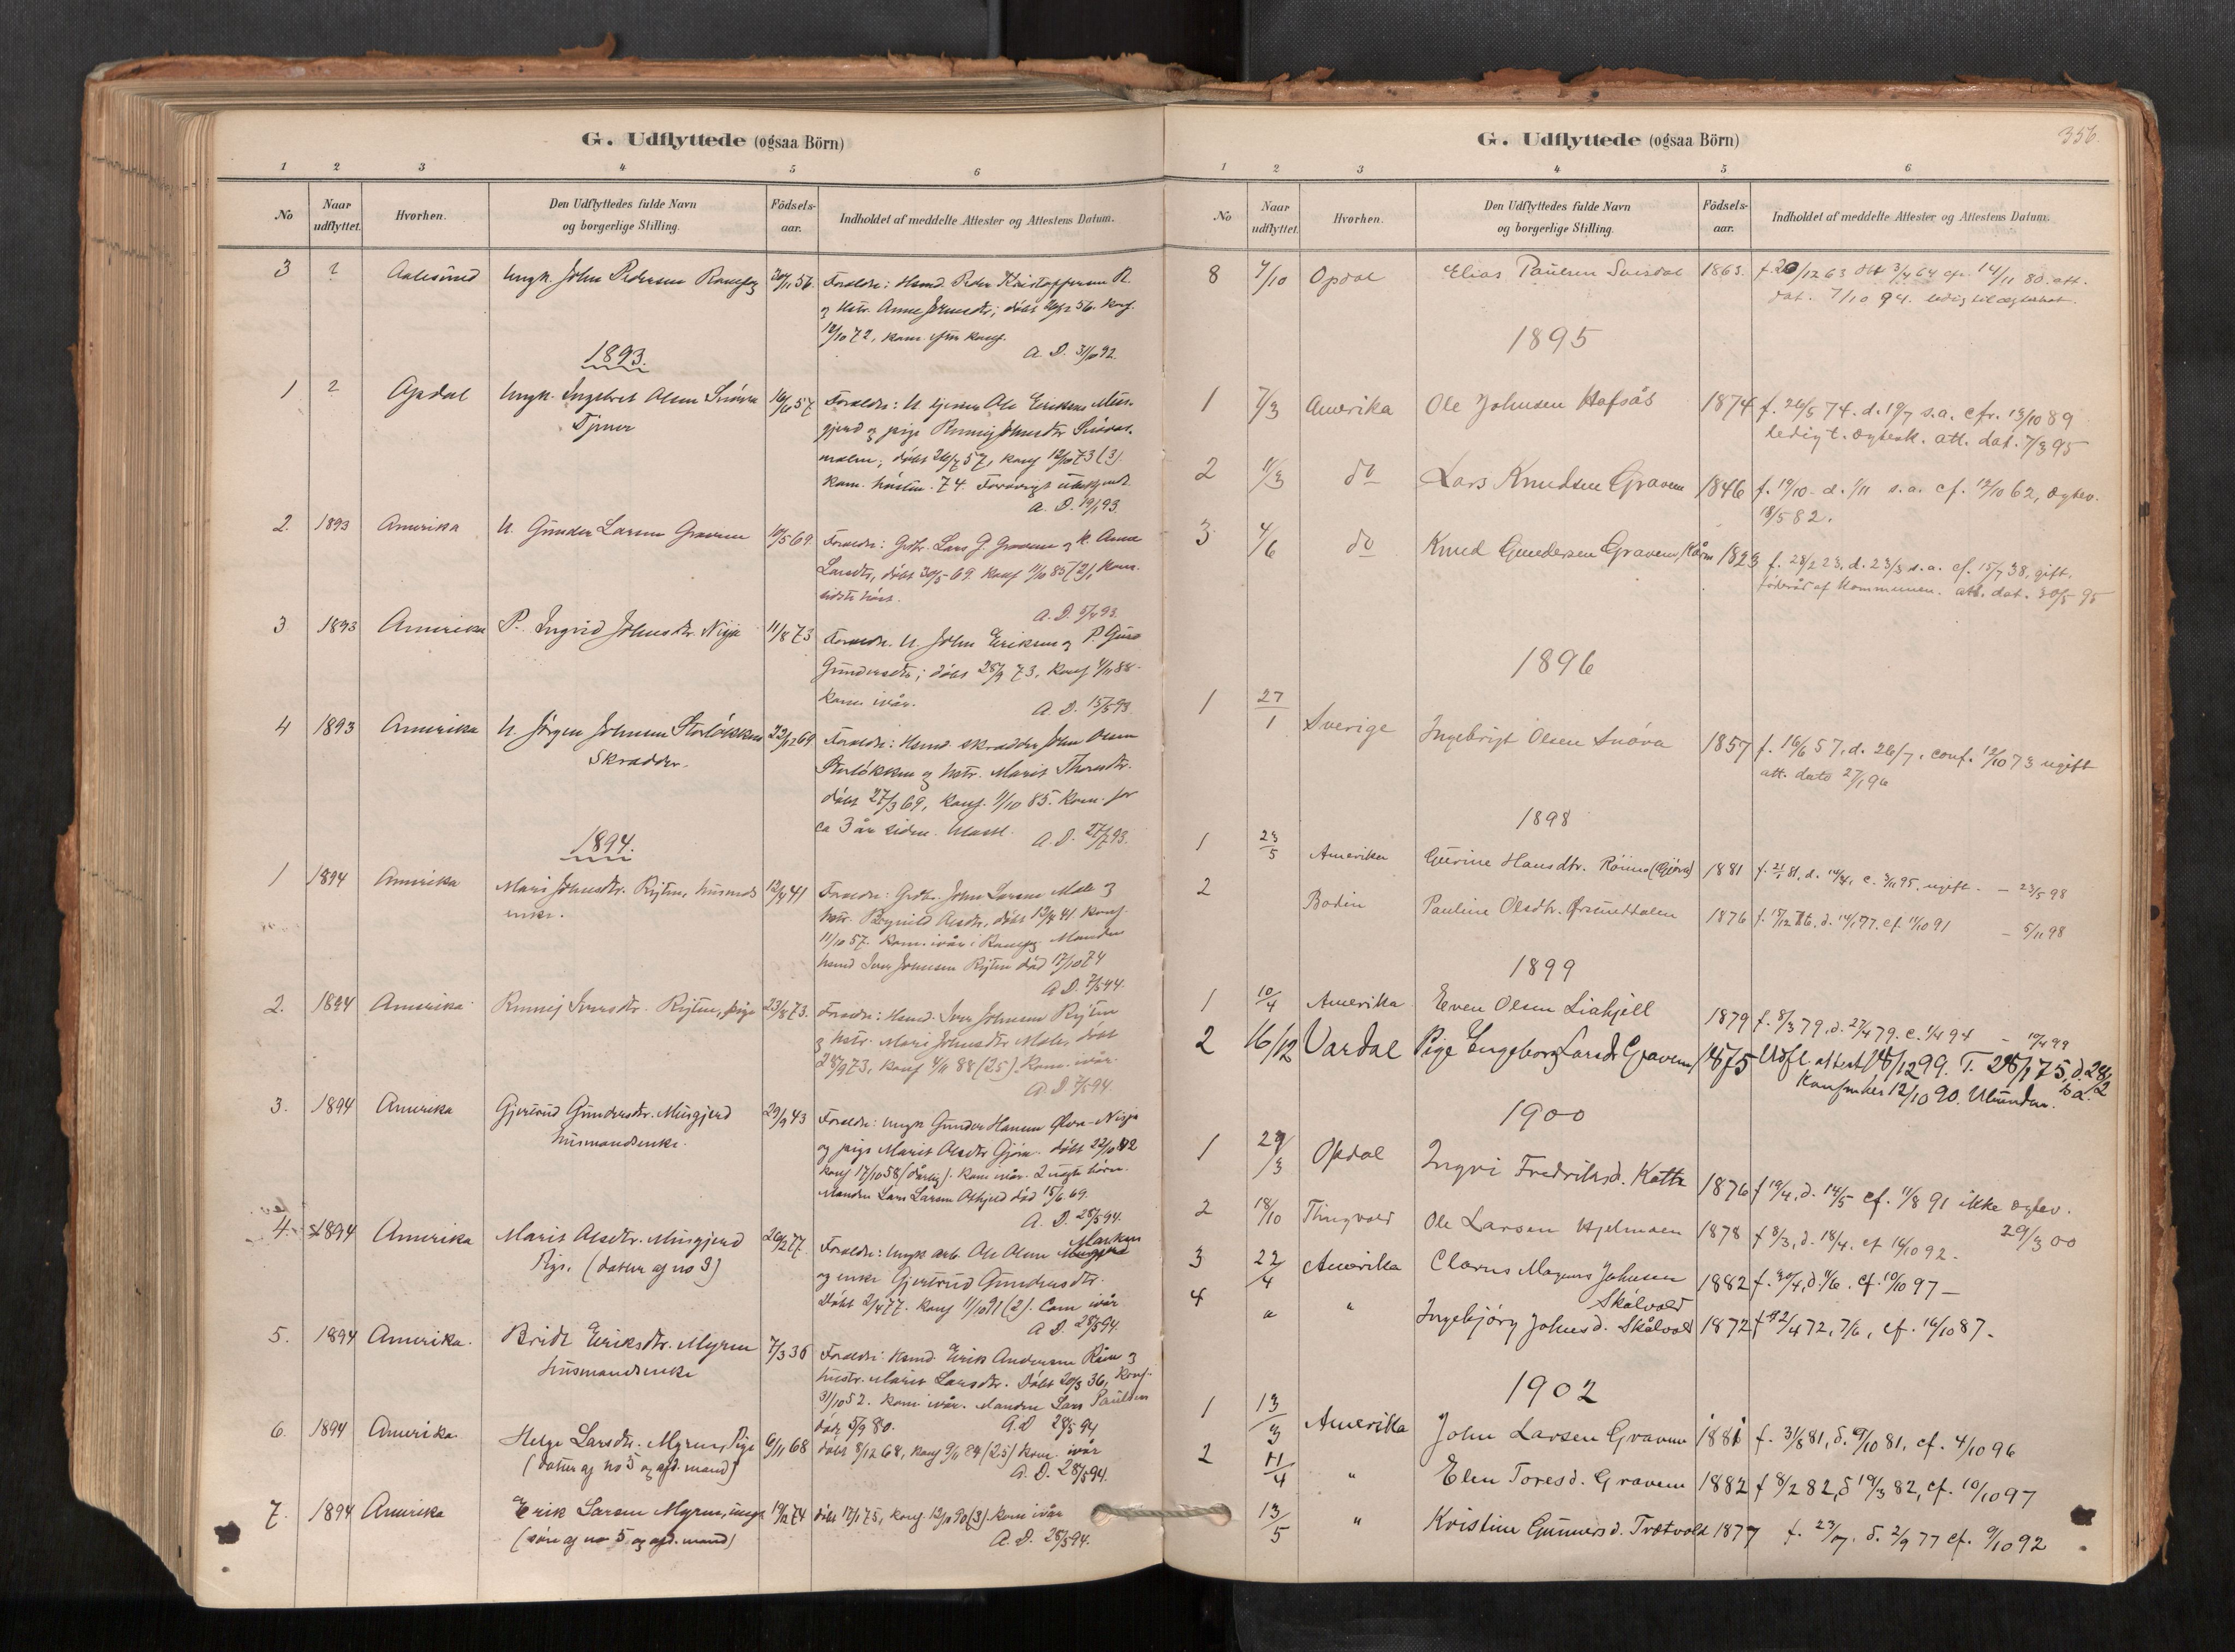 G. Udflyttede (ogsaa Börn)
1 2 3 4 5 6
No
Naar udflyttet.
Hvorhen.
Den Udflyttedes fulde Navn og borgerlige Stilling.
Födsels-aar.
Indholdet af meddelte Attester og Attestens Datum.
3 ? Aalesund Ungk. John Pedersen 20/11 56. Foreldre: Hsmd. Peder Kristoffersen R.
og hstr. Anne ; döbt 26/12 56. konf.
12/10 72, kom. efter konf.
A. D. 31/10 92.
1893.
1 ? Opdal Ungk. Ingebret Olsen Snöva 16/6 57 Foreldre: U. tjener Ole Eriksen Mus-
Tjener
gjerd og pige Johnsdtr Snövas-
melen; döbt 26/7 57, konf 12/10 73 (3).
kom. hösten 74. Forövrigt ubekjendt.
A. D. 19/1 93.
2. 1893 Amerika U. Gunder Larsen Gravem 10/5 69. Foreldre: Grdbr. Lars G. Gravem og k. Anne
Larsdtr, döbt 30/5 69. konf 11/10 85 (2), kom.
sidste höst.
A. D. 5/4 93.
3 1893 Amerika P. Ingrid Johnsdtr. Nisja 11/8 73 Foreldre. U. John Eriksen og P. Guro
Gundersdtr; döbt 28/9 73, konf 4/11 88.
kom. ivår.
A. D. 15/5 93
4 1893 Amerika U. Jörgen Johnsen Storlökken 22/2 69 Foreldre: Hsmd skrædder John Olsen
Skrædder.
Storlökken og hstr. Marit Thoresdtr.
döbt 27/3 69, konf. 11/10 85. Kom. for
ca 3 år siden.
A. D. 27/7 93.
1894.
1 1894 Amerika Mari Johnsdtr. Rÿten, husmds 12/4 41 Foreldre: Grdbr. John Larsen Male og
enke.
hstr. Olsdtr, döbt 12/4 41. konf.
11/10 57. kom. ivår i Manden
hsmd Iver Johnsen Rÿten död 17/10 74
A. D. 7/5 94.
2. 1894 Amerika Iversdtr. Rÿten, pige 23/8 73. Foreldre: Hsmd. Iver Johnsen Rÿten
og hstr. Mari Johnsdtr Male, döbt
28/9 73, konf 4/11 88 (25). Kom. ivår.
A. D 7/5 94.
3. 1894 Amerika Gjertrud Gundersdtr. Musgjerd 29/9 43 Foreldre: ungk Gunder Hansen Nisja
husmandsenke.
og pige Marit Olsdtr Gjöra. döbt 22/10 42
konf 17/10 58 (dårlig). kom ivår. 2 uægte börn.
Manden Lars Larsen död 15/6 69.
A. D. 28/5 94.
4. 1894 Amerika Marit Olsdtr. Musgjerd 26/2 77. Foreldre: Ungk arb. Ole Olsen
Pige. (datter af no 3)
og enke Gjertrud Gundersdtr.
Döbt 2/4 77. konf 11/10 91 (2). Com ivår
A D. 28/5 94.
5. 1894 Amerika. Bridt Eriksdtr. Myren 7/3 36 Foreldre: Hsmd. Erik Andersen og
husmandsenke
hustr. Marit Larsdtr. Döbt 20/3 36, konf.
31/10 52. kom ivår. Manden Lars Paulsen
död 5/9 80. A. D 28/5 94
6. 1894 Amerika Helge Larsdtr. Myren, Pige 6/11 68 döbt 8/12 68, konf 9/11 84 (25) kom. ivår
(datter af no 5 og afd. mand)
A. D. 28/5 94.
7. 1894 Amerika Erik Larsen Myren, ungk 19/12 74 döbt 17/1 75, konf. 12/10 90 (3). kom ivår
(sön af no 5 og afd. mand)
A. D. 28/5 94.
G. Udflyttede (ogsaa Börn)
356.
1 2 3 4 5 6
No
Naar udflyttet.
Hvorhen.
Den Udflyttedes fulde Navn og borgerlige Stilling.
Födsels-aar.
Indholdet af meddelte Attester og Attestens Datum.
8 7/10 Opdal Elias Paulsen 1863. f. 20/12 63 döbt 3/4 64 cfr. 14/11 80. att.
dat. 7/10 94. ledig til ægteskab.
1895
1 7/3 Amerika Ole Johnsen Hafsås 1874 f. 26/5 74. d. 19/7 s.a. cfr. 13/10 89
ledig t. ægtesk. att. dat. 7/3 95
2 11/3 do Lars Knudsen Gravem 1846 f. 19/10 d. 1/11 s.a. cf. 12/10 62, ægtev.
18/5 82.
3 4/6 do Knud Gundersen Gravem, kårm 1823 f. 28/2 23, d. 23/3 s.a. cf. 15/7 38, gift,
föderåd af kommunen. att. dat. 30/5 95
1896
1 27/1 Sverige Ingebrigt Olsen Snöva 1857 f. 16/6 57, d. 26/7, conf. 12/10 73 ugift
att. dato 27/1 96
1898
1 23/5 Amerika Gurine Hansdtr. Röimo (Gjöra) 1881 f. 21/1 81, d. 14/4, c. 3/11 95, ugift. – 23/5 98
2 Bodin Pauline Olsdtr. 1876 f. 17/12 76, d. 14/1 77. cf. 11/10 91 – 5/11 98
1899
1 10/4 Amerika Even Olsen Liahjell 1879 f. 8/3 79, d. 27/4 79. c. 1/4 94 – 10/4 99
2 16/12 Vardal Pige Engeborg Larsdr Gravem 1875 Udfl. attest 16/12 99. F. 25/1 75, d. 28/2
s a. Konfmeres 12/10 90.
1900
1 29/3 Opdal Ingri Fredriksd. 1876 f 19/4, d. 14/5 cf. 11/8 91 ikke ægtev.
29/3 00
2 18/10 Thingvold Ole Larsen Hjelmaen 1878 f 8/3, d. 18/4. cf 16/10 92.
3 22/4 Amerika Clarus Magnus Johnsen 1882 f. 20/4, d. 11/6. cf. 10/10 97 –
Skålvold
4 " " Ingebjörg Johnsd. Skålvold 1872 f 12/4 72, 7/6, cf. 16/10 87.
1902
1 13/3 Amerika John Larsen Gravem 1881 f. 31/8 81, d. 9/10 81, cf. 4/10 96
2 11/4 " Elen Toresd. Gravem 1882 f 8/2 82, d 19/3 82, cf. 10/10 97
13/5 " Kristine Gunnersd. Trætvold 1877 f. 23/7. d. 2/9 77 cf. 9/10 92